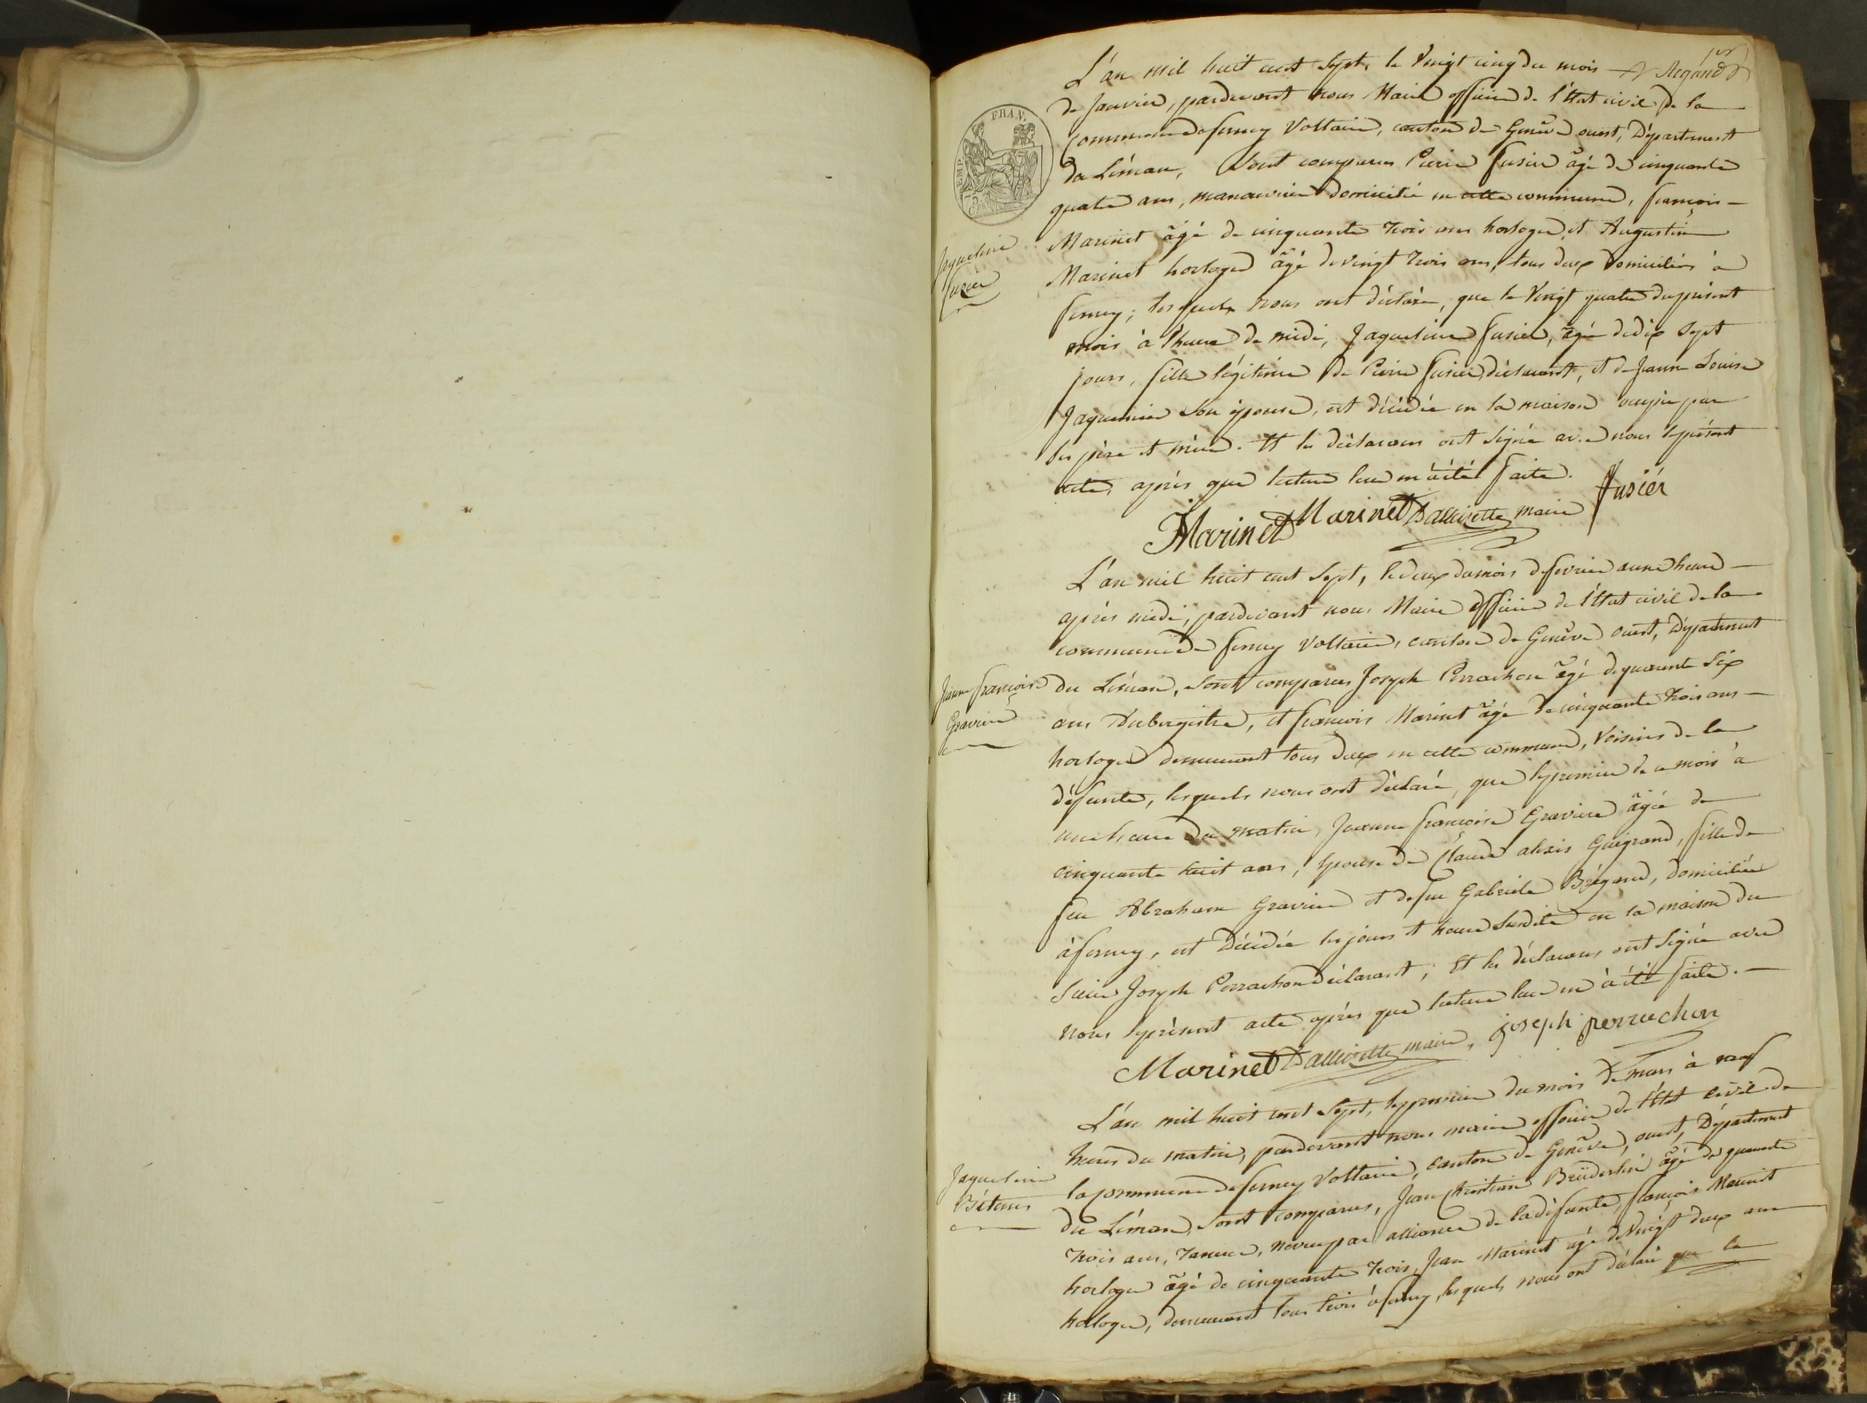 L'an mil huit cent sept, le vingt cinq du mois
de Janvier, pardevant nous Maire officier de l'Etat civil de la
commune de ferney Voltaire, canton de Genève ouest, Département
du Léman, sont comparus Pierre fusier âgé de cinquante
quatre ans, manouvrier domicilié en cette commune, françois
Marinet âgé de cinquante trois ans horloger, et Augustin
Marinet horloger âgé de vingt trois ans, tous deux domiciliés à
ferney; lesquels nous ont déclaré, que le vingt quatre du présent
mois à l'heure de midi, Jaqueline fusier, âgée de dix sept
jours, fille légitime de Pierre fusier déclarant, et de Jeanne Louise
son épouse, est décédée en la maison occupée par
ses père et mère. Et les déclarans ont signé avec nous le présent
acte, après que lecture leur en a été faite.
EMP. FRAN.
Jaqueline
fusier
Marinet Marinet maire fusiér
L'an mil huit cent sept, le deux du mois de fevrier a une heure
après midi, pardevant nous Maire officier de l'Etat civil de la
commune de ferney Voltaire, canton de Genève ouest, Département
du Léman, sont comparus Joseph Perrachon âgé de quarante six
ans Aubergiste, et françois Marinet âgé de cinquante trois ans
horloger demeurant tous deux en cette commune, Voisins de la
défunte, lesquels nous ont déclaré, que le premier de ce mois à
une heure du matin, Jeanne françoise Gravier âgée de
cinquante huit ans, épouse de Claude alexis, fille de
feu Abraham Gravier et de feu Gabriele, domiciliée
à ferney, est Décédée les jours et heure susdite en la maison du
Sieur Joseph Perrachon déclarant; Et les déclarans ont signé avec
nous le présent acte après que lecture leur en à été faite.
Jeanne françoise
Gravier
Marinet maire, joseph perrachon
L'an mil huit cent sept, le premier du mois de mars à neuf
heures du matin, pardevant nous maire officier de l'Etat civil de
la commune de ferney Voltaire, canton de Genève, ouest, Département
du Léman, sont comparus, Jean Christian âgé de quarante
trois ans, Taneur, neveu par alliance de la défunte, françois Marinet
horloger âgé de cinquante trois, Jean Marinet âgé de Vingt deux ans
horloger, demeurant tous trois à ferney, lesquels nous ont déclaré que le
Jaqueline